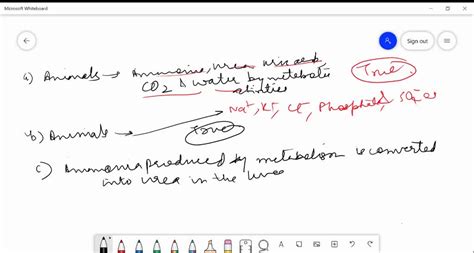 Microsoft Whiteboard
Sign out
a) Animals → Ammonia, urea, uric acid,
CO2 & water by metabolic
True
Na+, K+, Cl-, Phosphate,
b) Animals →
True
c) Ammonia produced by metabolism is converted
into urea in the liver